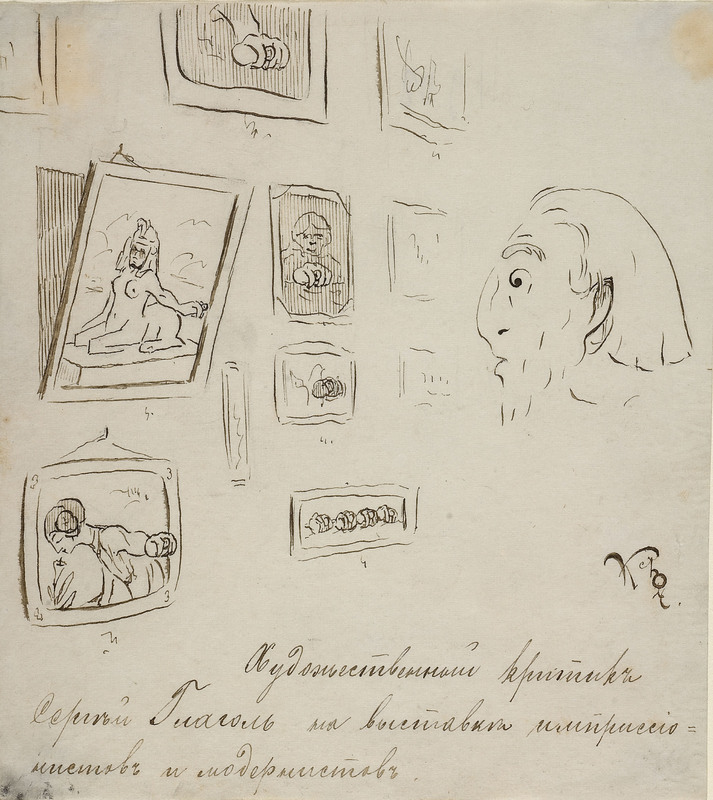 Художественный критикъ
Сергѣй Глаголь на выставкѣ импрессіо=
нистовъ и модернистовъ.